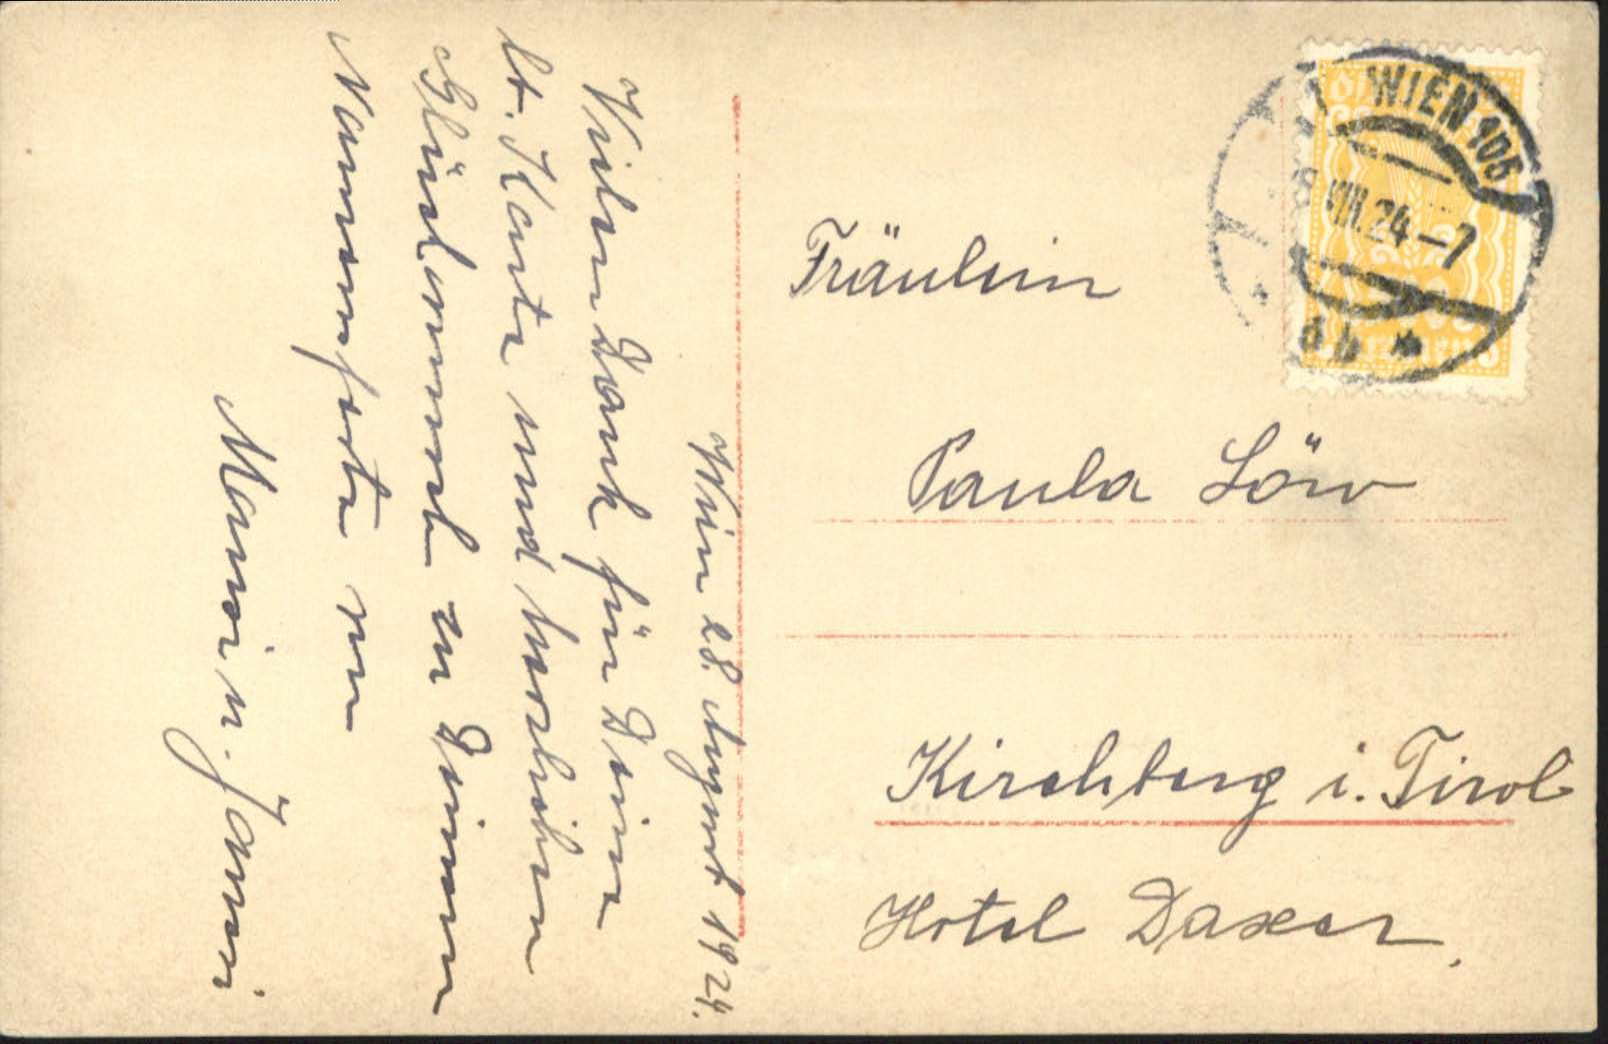 WIEN 105
VIII.24-7
Fräulein
Paula Löw
Kirchberg i. Tirol
Hotel Daxer.
Wien 28. August 1924.
Vielen Dank für Deine
lb. Karte und herzlichen
Glückwunsch zu Deinem
Namensfeste
u.